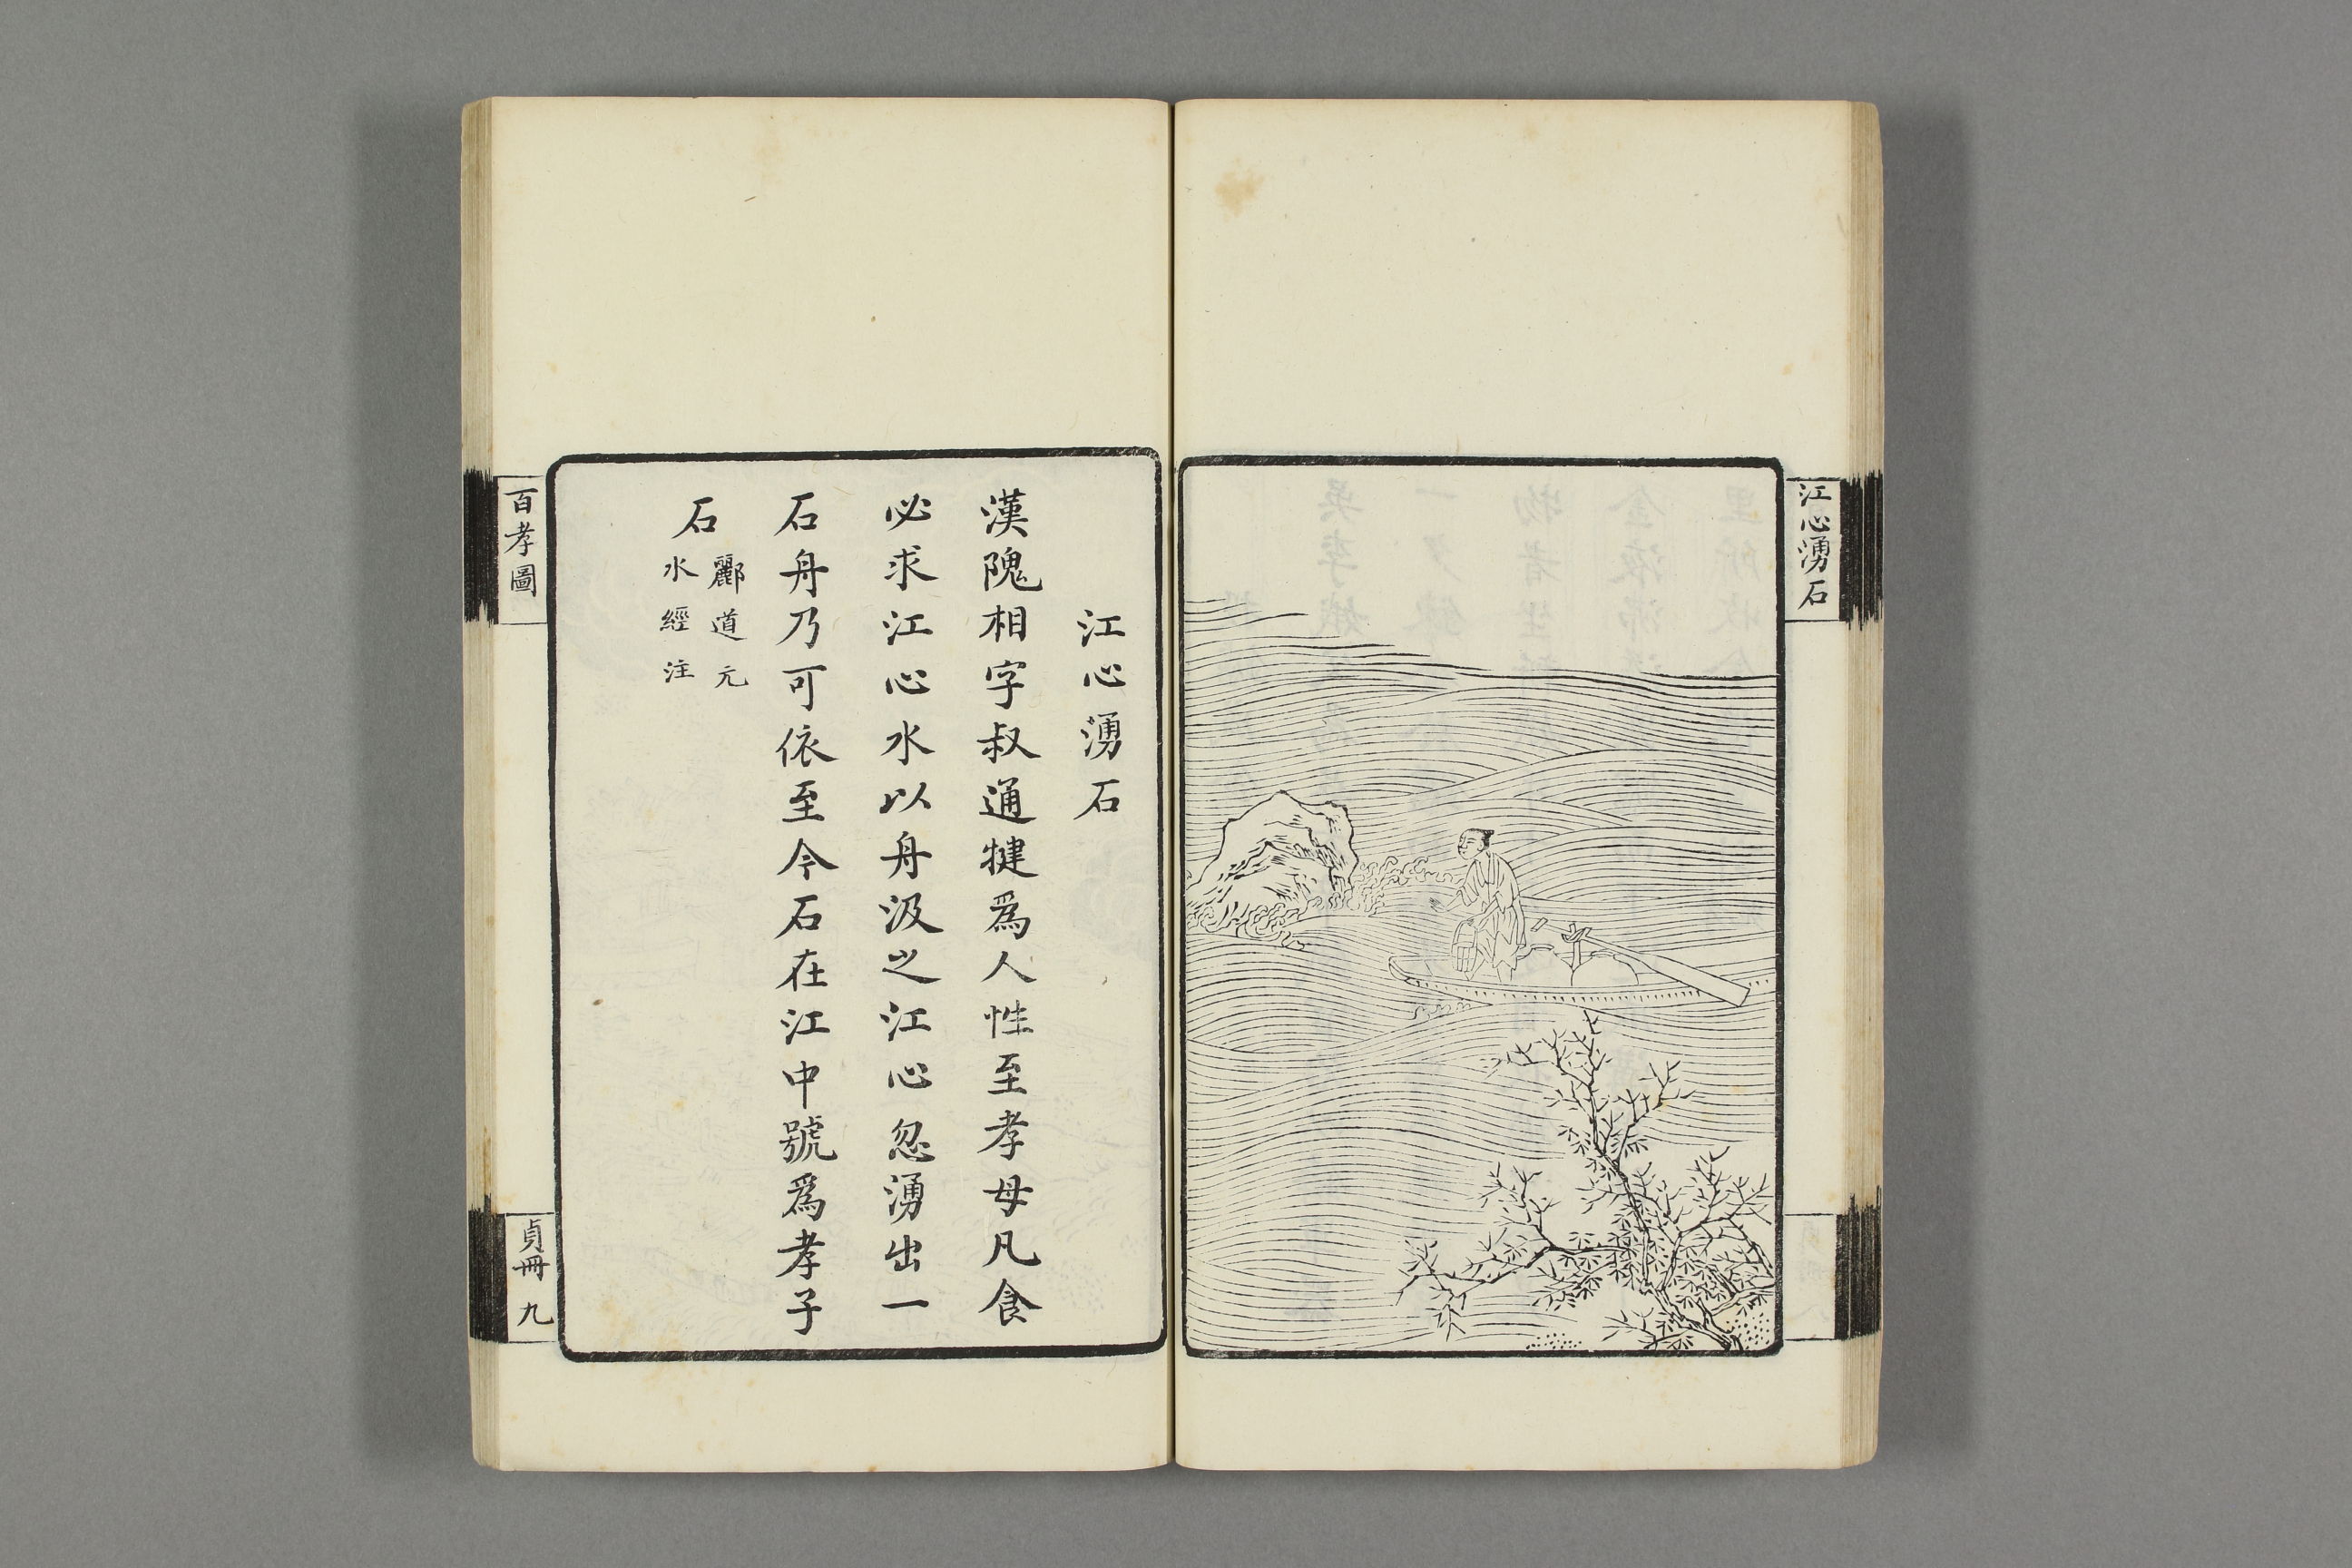 江心湧石
江心湧石
漢隗相字叔通犍爲人性至孝母凡食
必求江心水以舟汲之江心忽湧出一
石舟乃可依至今石在江中號爲孝子
石
酈道元
水經注
百孝圖
貞冊 九